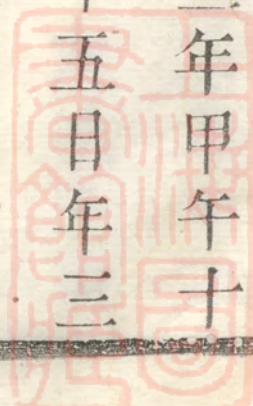 年甲午十
五日年三